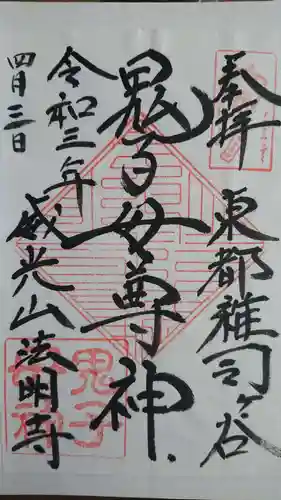 奉拝
東都雑司ケ谷
鬼子母尊神
令和三年
四月三日
威光山法明寺